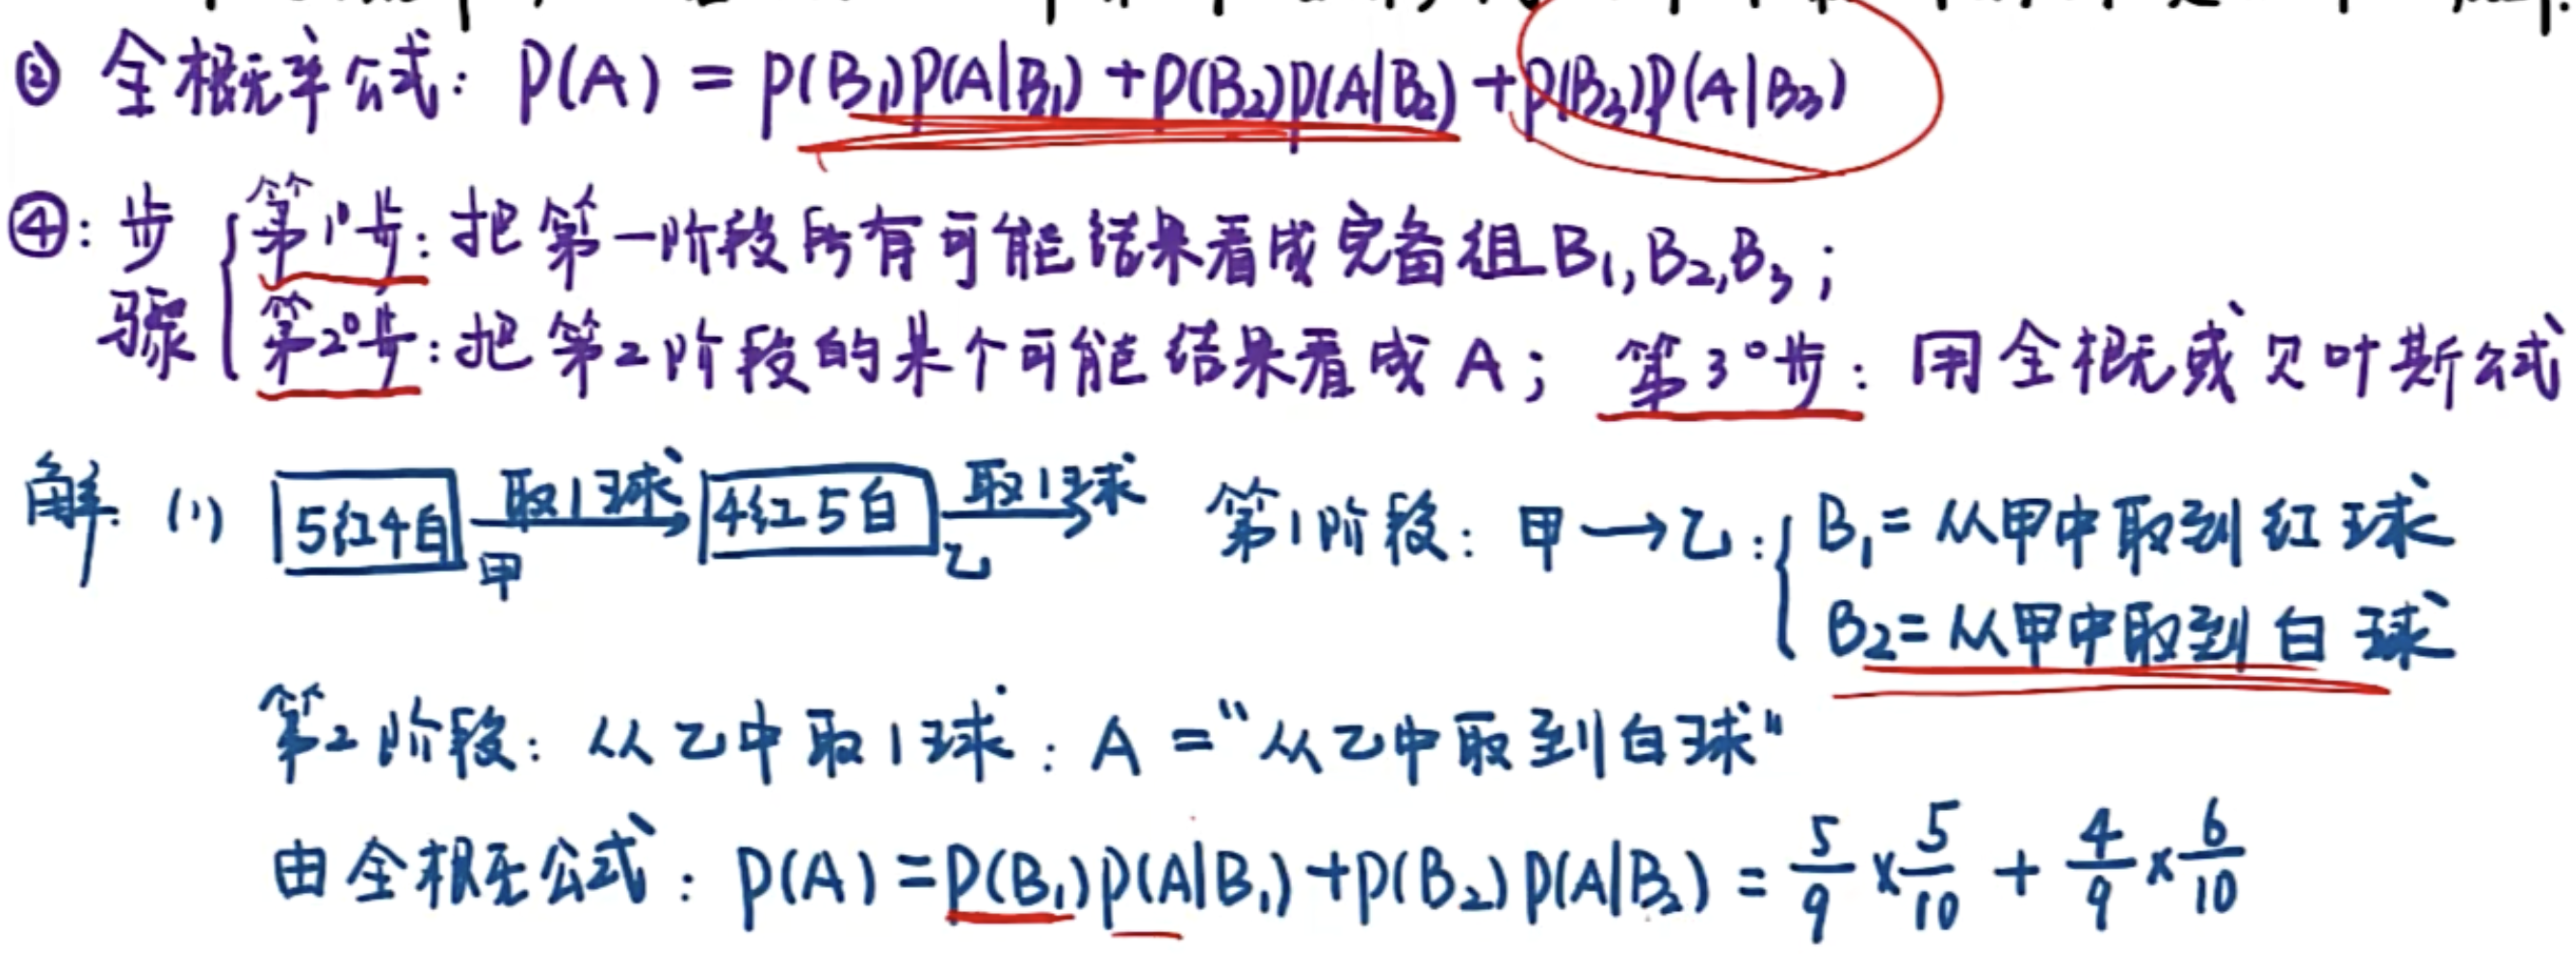 ② 全概率公式: P(A) = P(B₁)P(A|B₁) + P(B₂)P(A|B₂) + P(B₃)P(A|B₃)
④: 步骤 { 第1°步: 把第一阶段所有可能结果看成完备组B₁,B₂,B₃;
第2°步: 把第2阶段的某个可能结果看成A; 第3°步: 用全概或贝叶斯公式
解: (1) 5红4白 甲 取1球 → 4红5白 乙 取1球 → 第1阶段: 甲→乙: { B₁= 从甲中取到红球
B₂= 从甲中取到白球
第2阶段: 从乙中取1球: A = “从乙中取到白球”
由全概公式: P(A) = P(B₁)P(A|B₁) + P(B₂)P(A|B₂) = 5/9 × 5/10 + 4/9 × 6/10